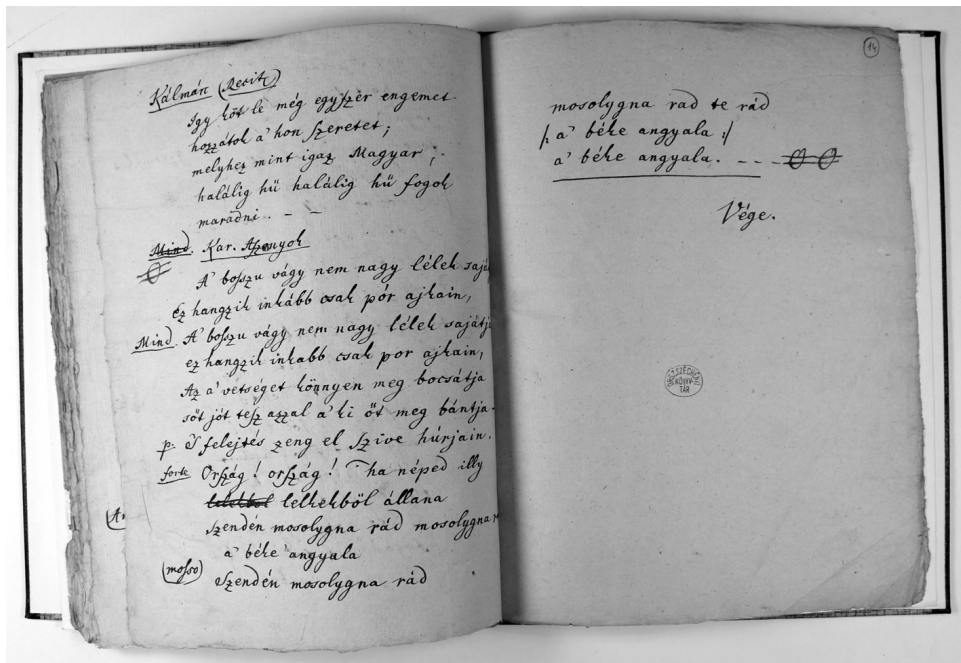 Kálmán (Recit)
Igy köt le még egyszer engemet
hozzátok a' hon szeretet;
melyhez mint igaz Magyar;
halálig hű halálig hű fogok
maradni. - -
Mind. Kar. Aszonyok
A' boszu vágy nem nagy lélek saját
Ez hangzik inkább csak pór ajkain,
Mind. A' boszu vágy nem nagy lélek sajátja
ez hangzik inkabb csak por ajkain,
Az a' vetséget könnyen meg bocsátja
sőt jót tesz azzal a' ki őt meg bántja.
p. S felejtés zeng el szive húrjain.
forte Ország! ország! ha néped illy
lelkekből állana
szendén mosolygna rád mosolygna
a' béke angyala
(mosso) Szendén mosolygna rád
A.
14
mosolygna rad te rád
/: a' béke angyala :/
a' béke angyala. - - -
Vége.
ORSZ. SZÉCHÉNYI
KÖNYV-
TÁR